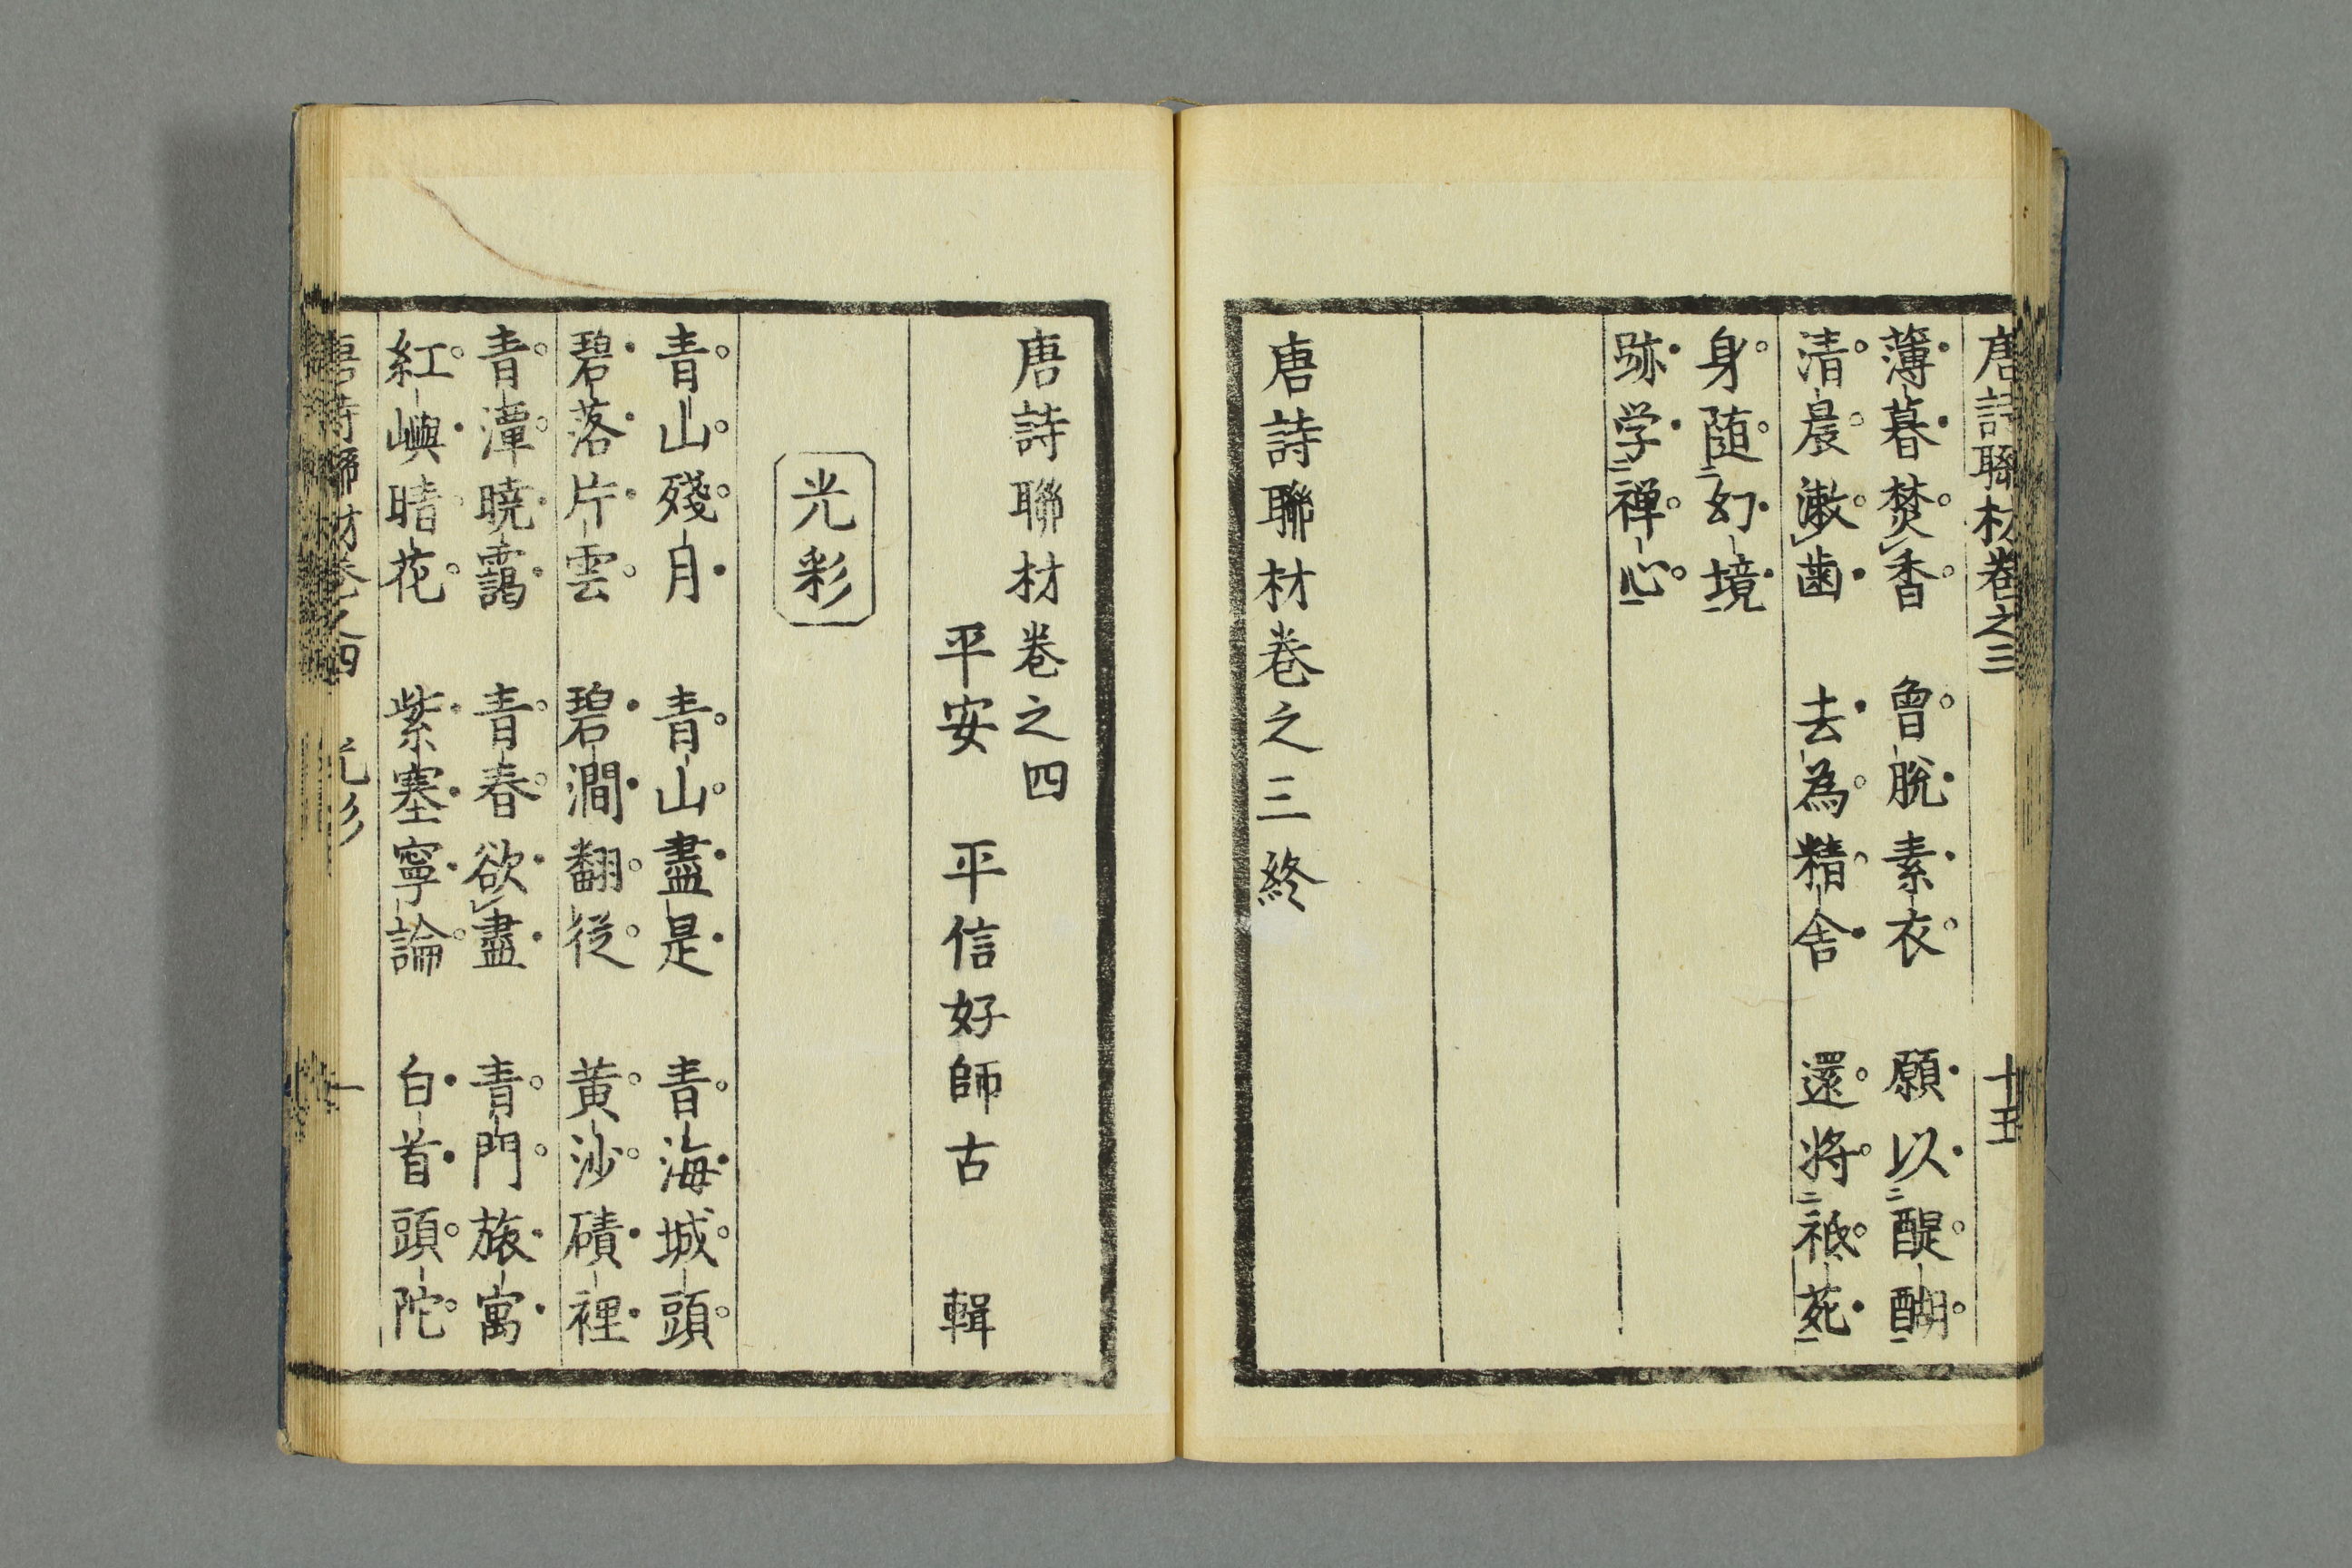 唐詩聯材卷之三 十五
薄暮焚香 曾脫素衣 願以醍醐
清晨漱齒 去為精舍 還將祗苑
身随幻境
跡学禅心
唐詩聯材卷之三終
唐詩聯材卷之四
平安 平信好師古 輯
光彩
青山殘月 青山盡是 青海城頭
碧落片雲 碧澗翻從 黄沙磧裡
青潭曉靄 青春欲盡 青門旅寓
紅嶼晴花 紫塞寧論 白首頭陀
唐詩聯材卷之四 光彩 一